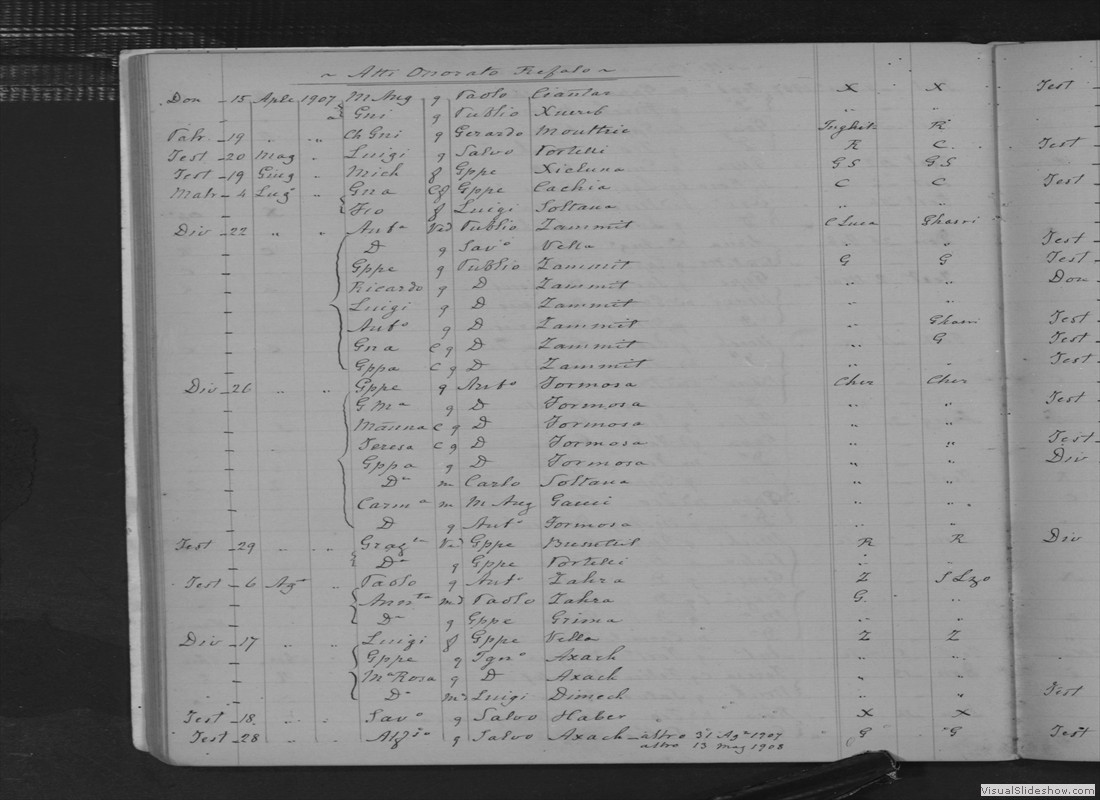 ~ Atti Onorato Refalo ~
Don - 15 Aple 1907 M Aug g Paolo Ciantar X X Test
a Gni g Publio Xuereb " "
Patr. - 19 " " Ch Gni g Gerardo Mouttrie R
Test - 20 Mag " Luigi g Salvo Portelli R C. Test
Test - 19 Giug " Mich f Gppe Xicluna GS GS
Matr - 4 Lug° " Gna Cf Gppe Cachia C C Test
f Luigi Soltana " "
Div - 22 " " Ant a Vед Publio Zammit C Luca Ghasri
D g Sav° Vella " " Test
Gppe g Publio Zammit G G Test
Ricardo g D Zammit " " Don
Luigi g D Zammit " "
Ant° g D Zammit " Ghasri Test
Gna C g D Zammit " G Test
Gppa C g D Zammit " " Test
Div - 26 " " Gppe g Ant° Formosa Cher Cher
G M a g D Formosa " " Test
C g D Formosa " "
Teresa C g D Formosa " " Test
Gppa g D Formosa " " Div
D a m Carlo Soltana " "
Carm a m M Aug Gauci " "
D g Ant° Formosa " "
Test - 29 " " Graz a Ved Gppe R R Div
D a g Gppe Portelli " "
Test - 6 Ag° " Paolo g Ant° Zahra Z S Lzo
m Paolo Zahra G. "
D a g Gppe Grima " "
Div - 17 " " Luigi f Gppe Vella Z Z
Gppe g Ign° Axach " "
M a Rosa g D Axach " "
D a m Luigi Dimech " " Test
Test - 18 " " Sav° g Salvo Haber X X
Test - 28 " " g Salvo Axach - altro 31 Ag° 1907 G G Test
altro 13 Mag 1908
VisualSlideshow.com